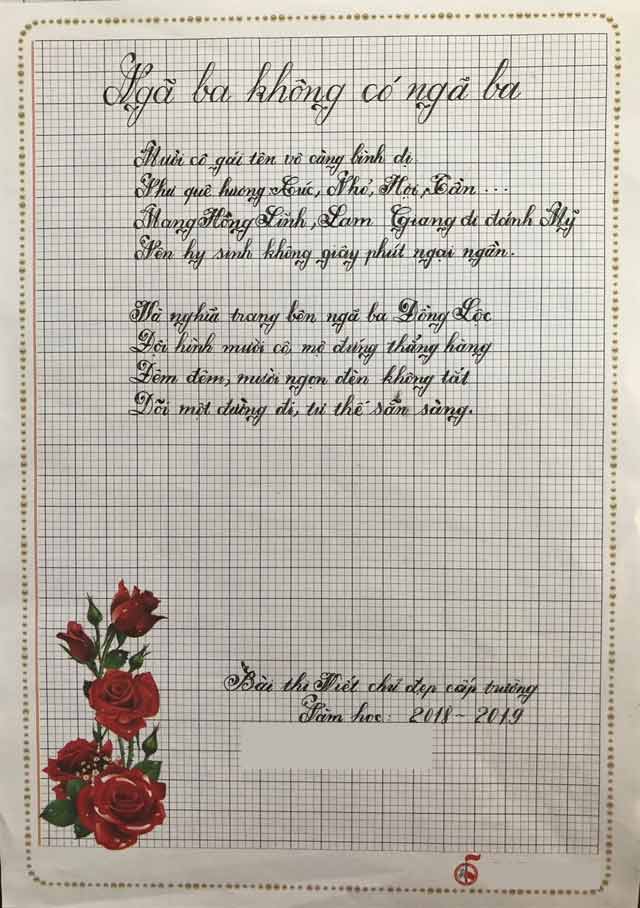 Ngã ba không có ngã ba
Mười cô gái tên vô cùng bình dị
Như quê hương: Xuc, Nhỏ, Hợi, Tần ...
Mang Hồng Lĩnh, Lam Giang đi đánh Mỹ
Nên hy sinh không giây phút ngại ngần.
Và nghĩa trang bên ngã ba Đồng Lộc
Đội hình mười cô, mộ đứng thẳng hàng
Đêm đêm, mười ngọn đèn không tắt
Dõi một đường đi, tư thế sẵn sàng.
Bài thi Viết chữ đẹp cấp trường
Năm học: 2018 - 2019